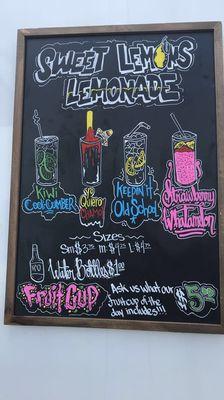 Sweet Lemons
Lemonade
Kiwi
Cool-Cumber
Yo
Quiero
Chamoy
Keepin' it
Old School
Strawberry
Whatamelon
Sizes
Water Bottles $1.00
Fruit Cup
Ask us what our
fruit cup of the
day includes!!!